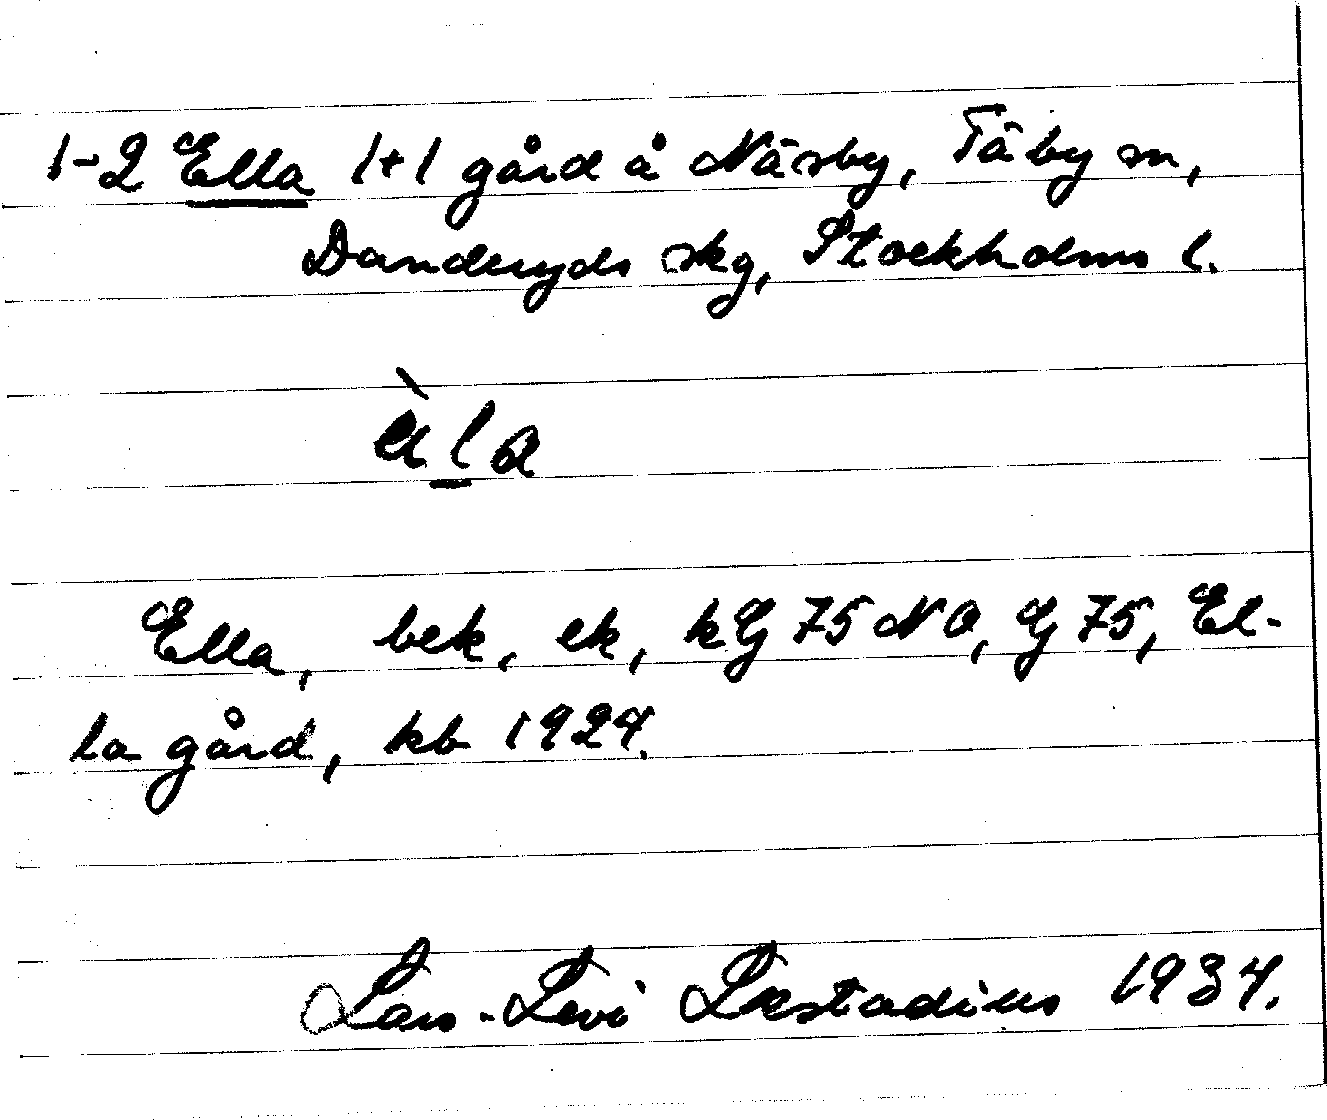 1-2 Ella 1+1 gård å Näsby, Täby sn,
Danderyds skg, Stockholms l.
ὰla
Ella, bek, ek, kG 75 NO, G 75, El-
la gård, kb 1924.
Lars-Levi Læstadius 1934.